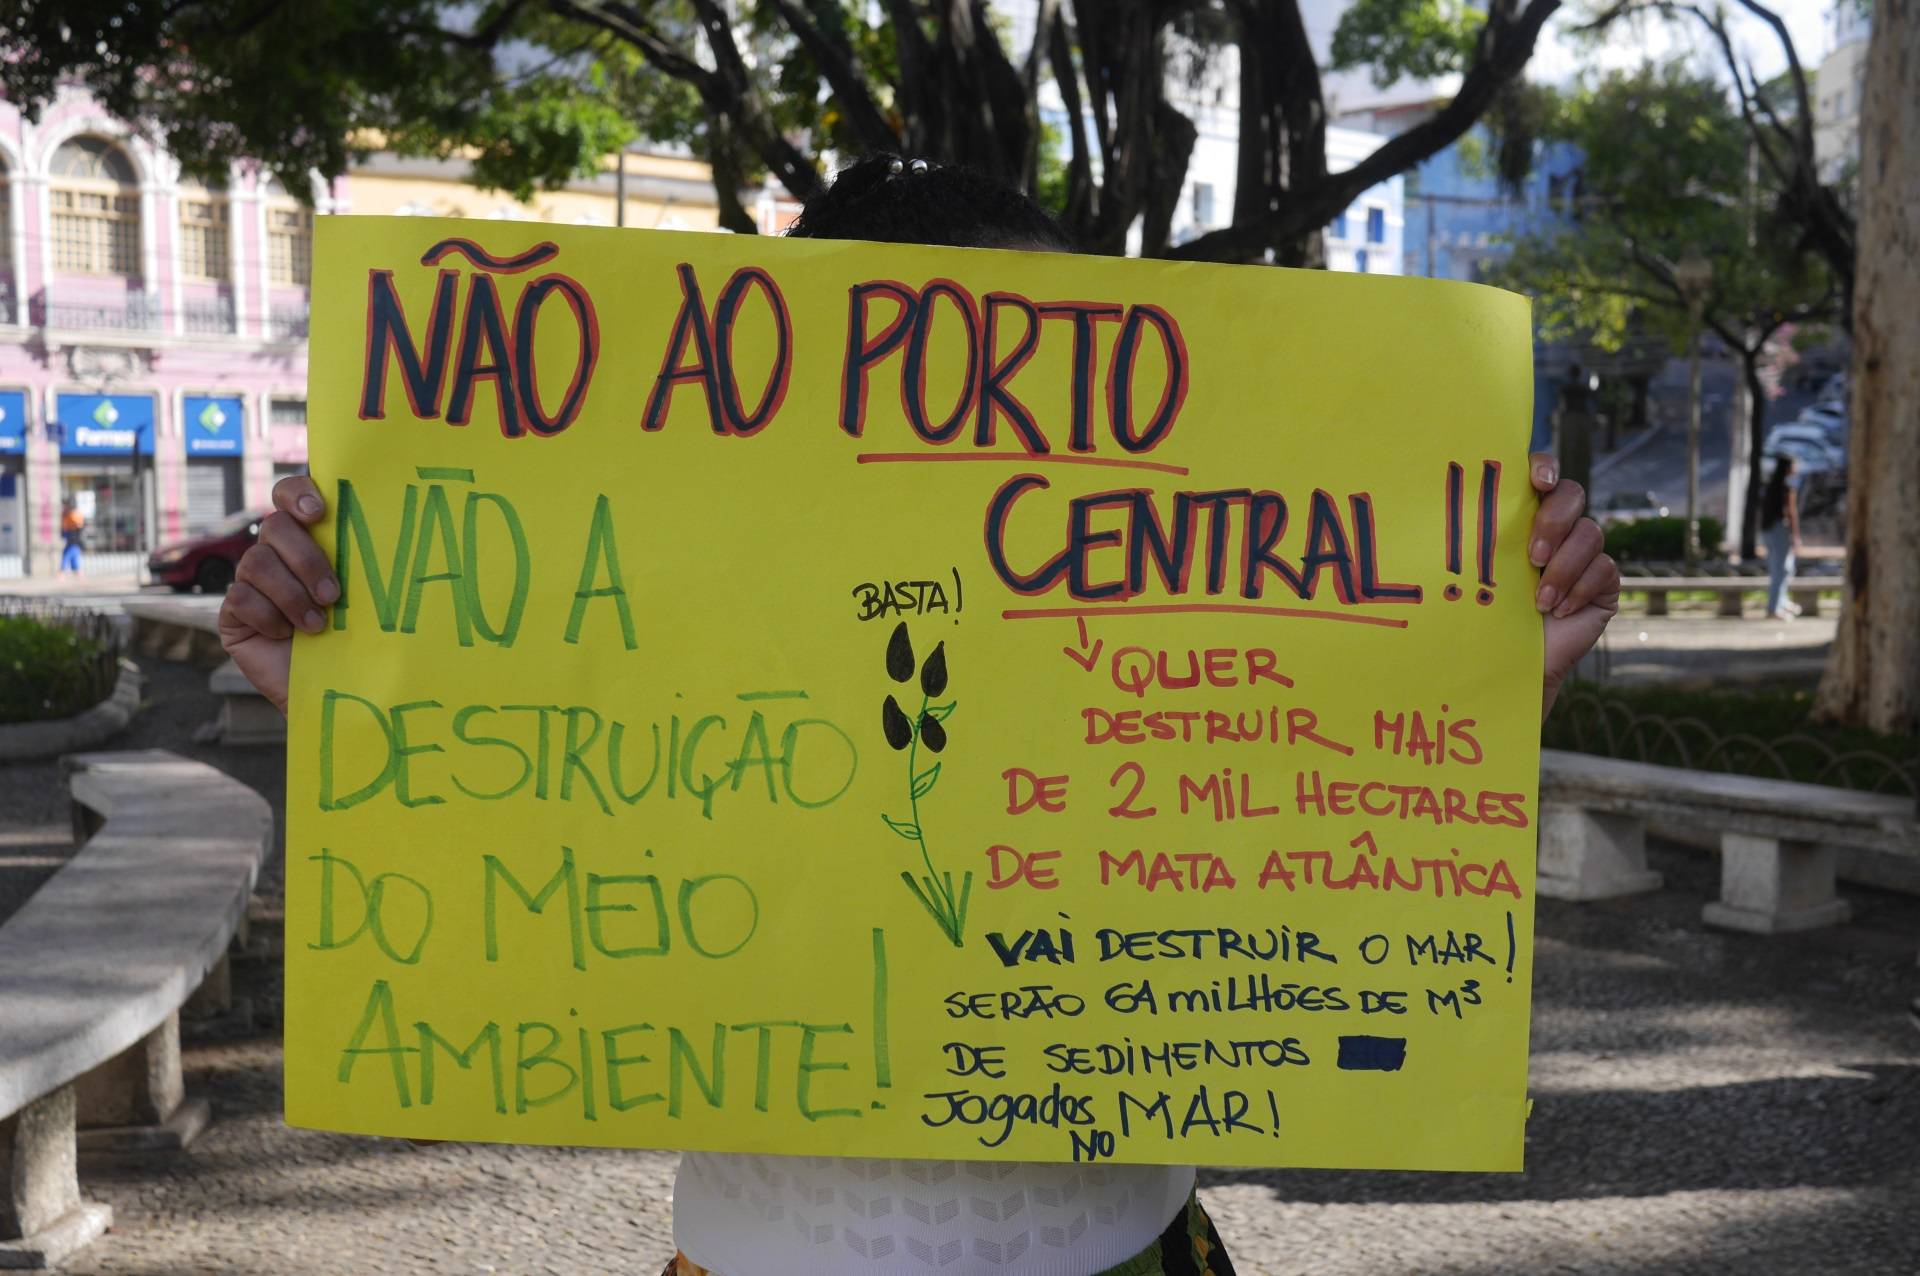 NÃO AO PORTO
CENTRAL!!
NÃO A
DESTRUIÇÃO
DO MEIO
AMBIENTE!
BASTA!
QUER
DESTRUIR MAIS
DE 2 MIL HECTARES
DE MATA ATLÂNTICA
VAI DESTRUIR O MAR!
SERÃO 64 milHÕES DE M³
DE SEDIMENTOS
Jogados NO MAR!